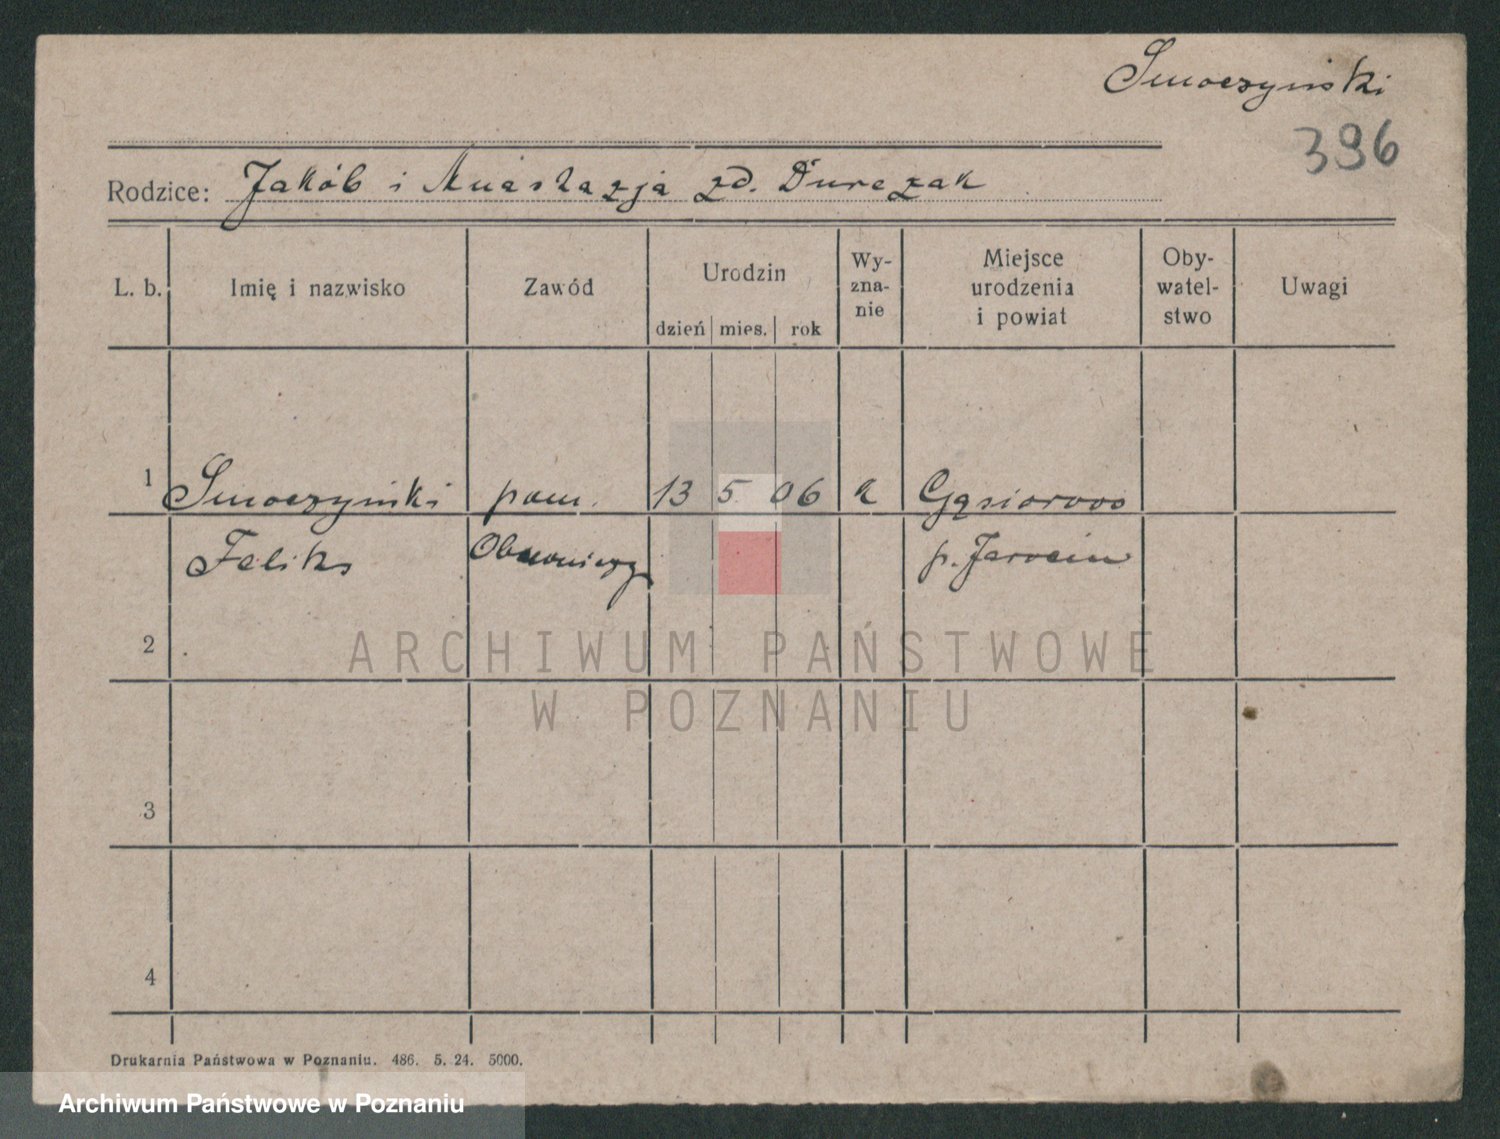 Smoczyński
396
Rodzice: Jakób i Anastazja zd. Durczak
L. b. Imię i nazwisko Zawód Urodzin dzień mies. rok Wy-zna-nie Miejsce urodzenia i powiat Oby-watel-stwo Uwagi
1 Smoczyński pom. 13 5 06 k Gąsiorowo
Feliks p. Jarocin
2
3
4
ARCHIWUM PAŃSTWOWE
W POZNANIU
Drukarnia Państwowa w Poznaniu. 486. 5. 24. 5000.
Archiwum Państwowe w Poznaniu